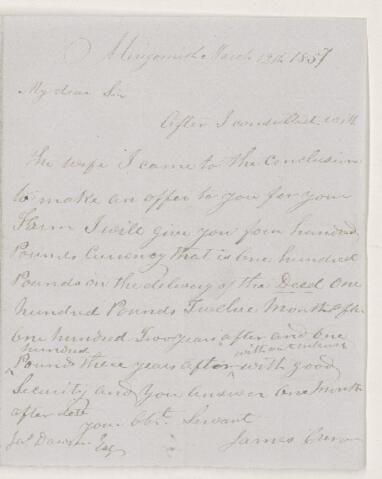 Merigomish March 12th 1857
My dear Sir
After I consulted with
the wife I came to the conclusion
to make an offer to you for your
Farm I will give you four hundred
Pounds Currency that is one hundred
Pounds on the delivery of the Deed one
hundred Pounds Twelve Months after
one hundred Two years after and one
hundred
Pound three years after with good
without interest
Security and you answer one Month
after date
your Obt. Servant
Jas Dawson Esq
James